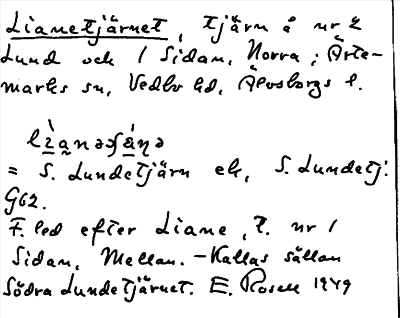 Lianetjärnet, tjärn å nr 2
Lund och 1 Sidan, Norra; Ärte-
marks sn, Vedbo hd, Älvsborgs l.
= S. Lundetjärn ek, S. Lundetj:
G62.
F. led efter Liane, t. nr 1
Sidan, Mellan. – Kallas sällan
Södra Lundetjärnet. E. Rosell 1949